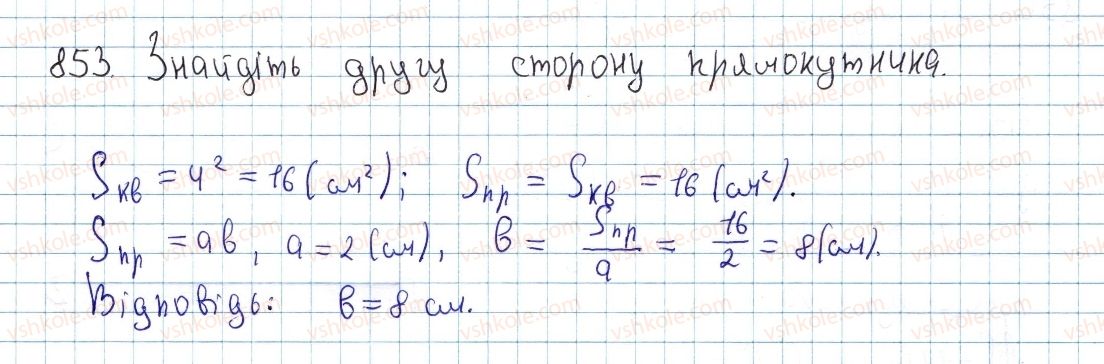 853. Знайдіть другу сторону прямокутника.
Sкв = 4² = 16 (см²); Sпр = Sкв = 16 (см²).
Sпр = ab, a = 2 (см), b = Sпр/a = 16/2 = 8 (см).
Відповідь: b = 8 см.
vshkole.com